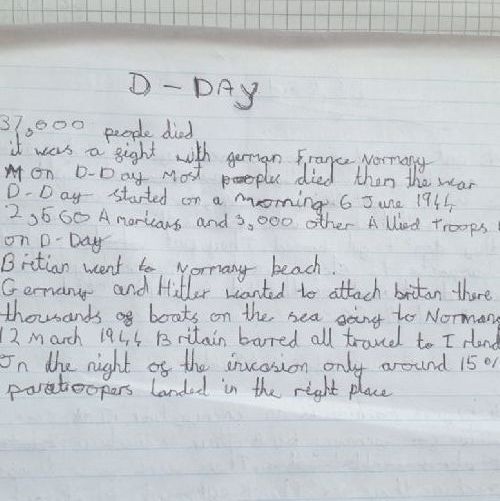 D - DAY
37,000 people died
it was a fight with german France Normany
M on D-Day Most people died then the war
D-Day started on a morning 6 June 1944
2,560 Americans and 3,000 other Allied Troops
on D-Day
Britian went to Normany beach.
Germany and Hitler wanted to attach britan there
thousands of boats on the sea going to Normany
12 March 1944 Britain barred all travel to Irlend
In the night of the invasion only around 15%
paratroopers landed in the right place